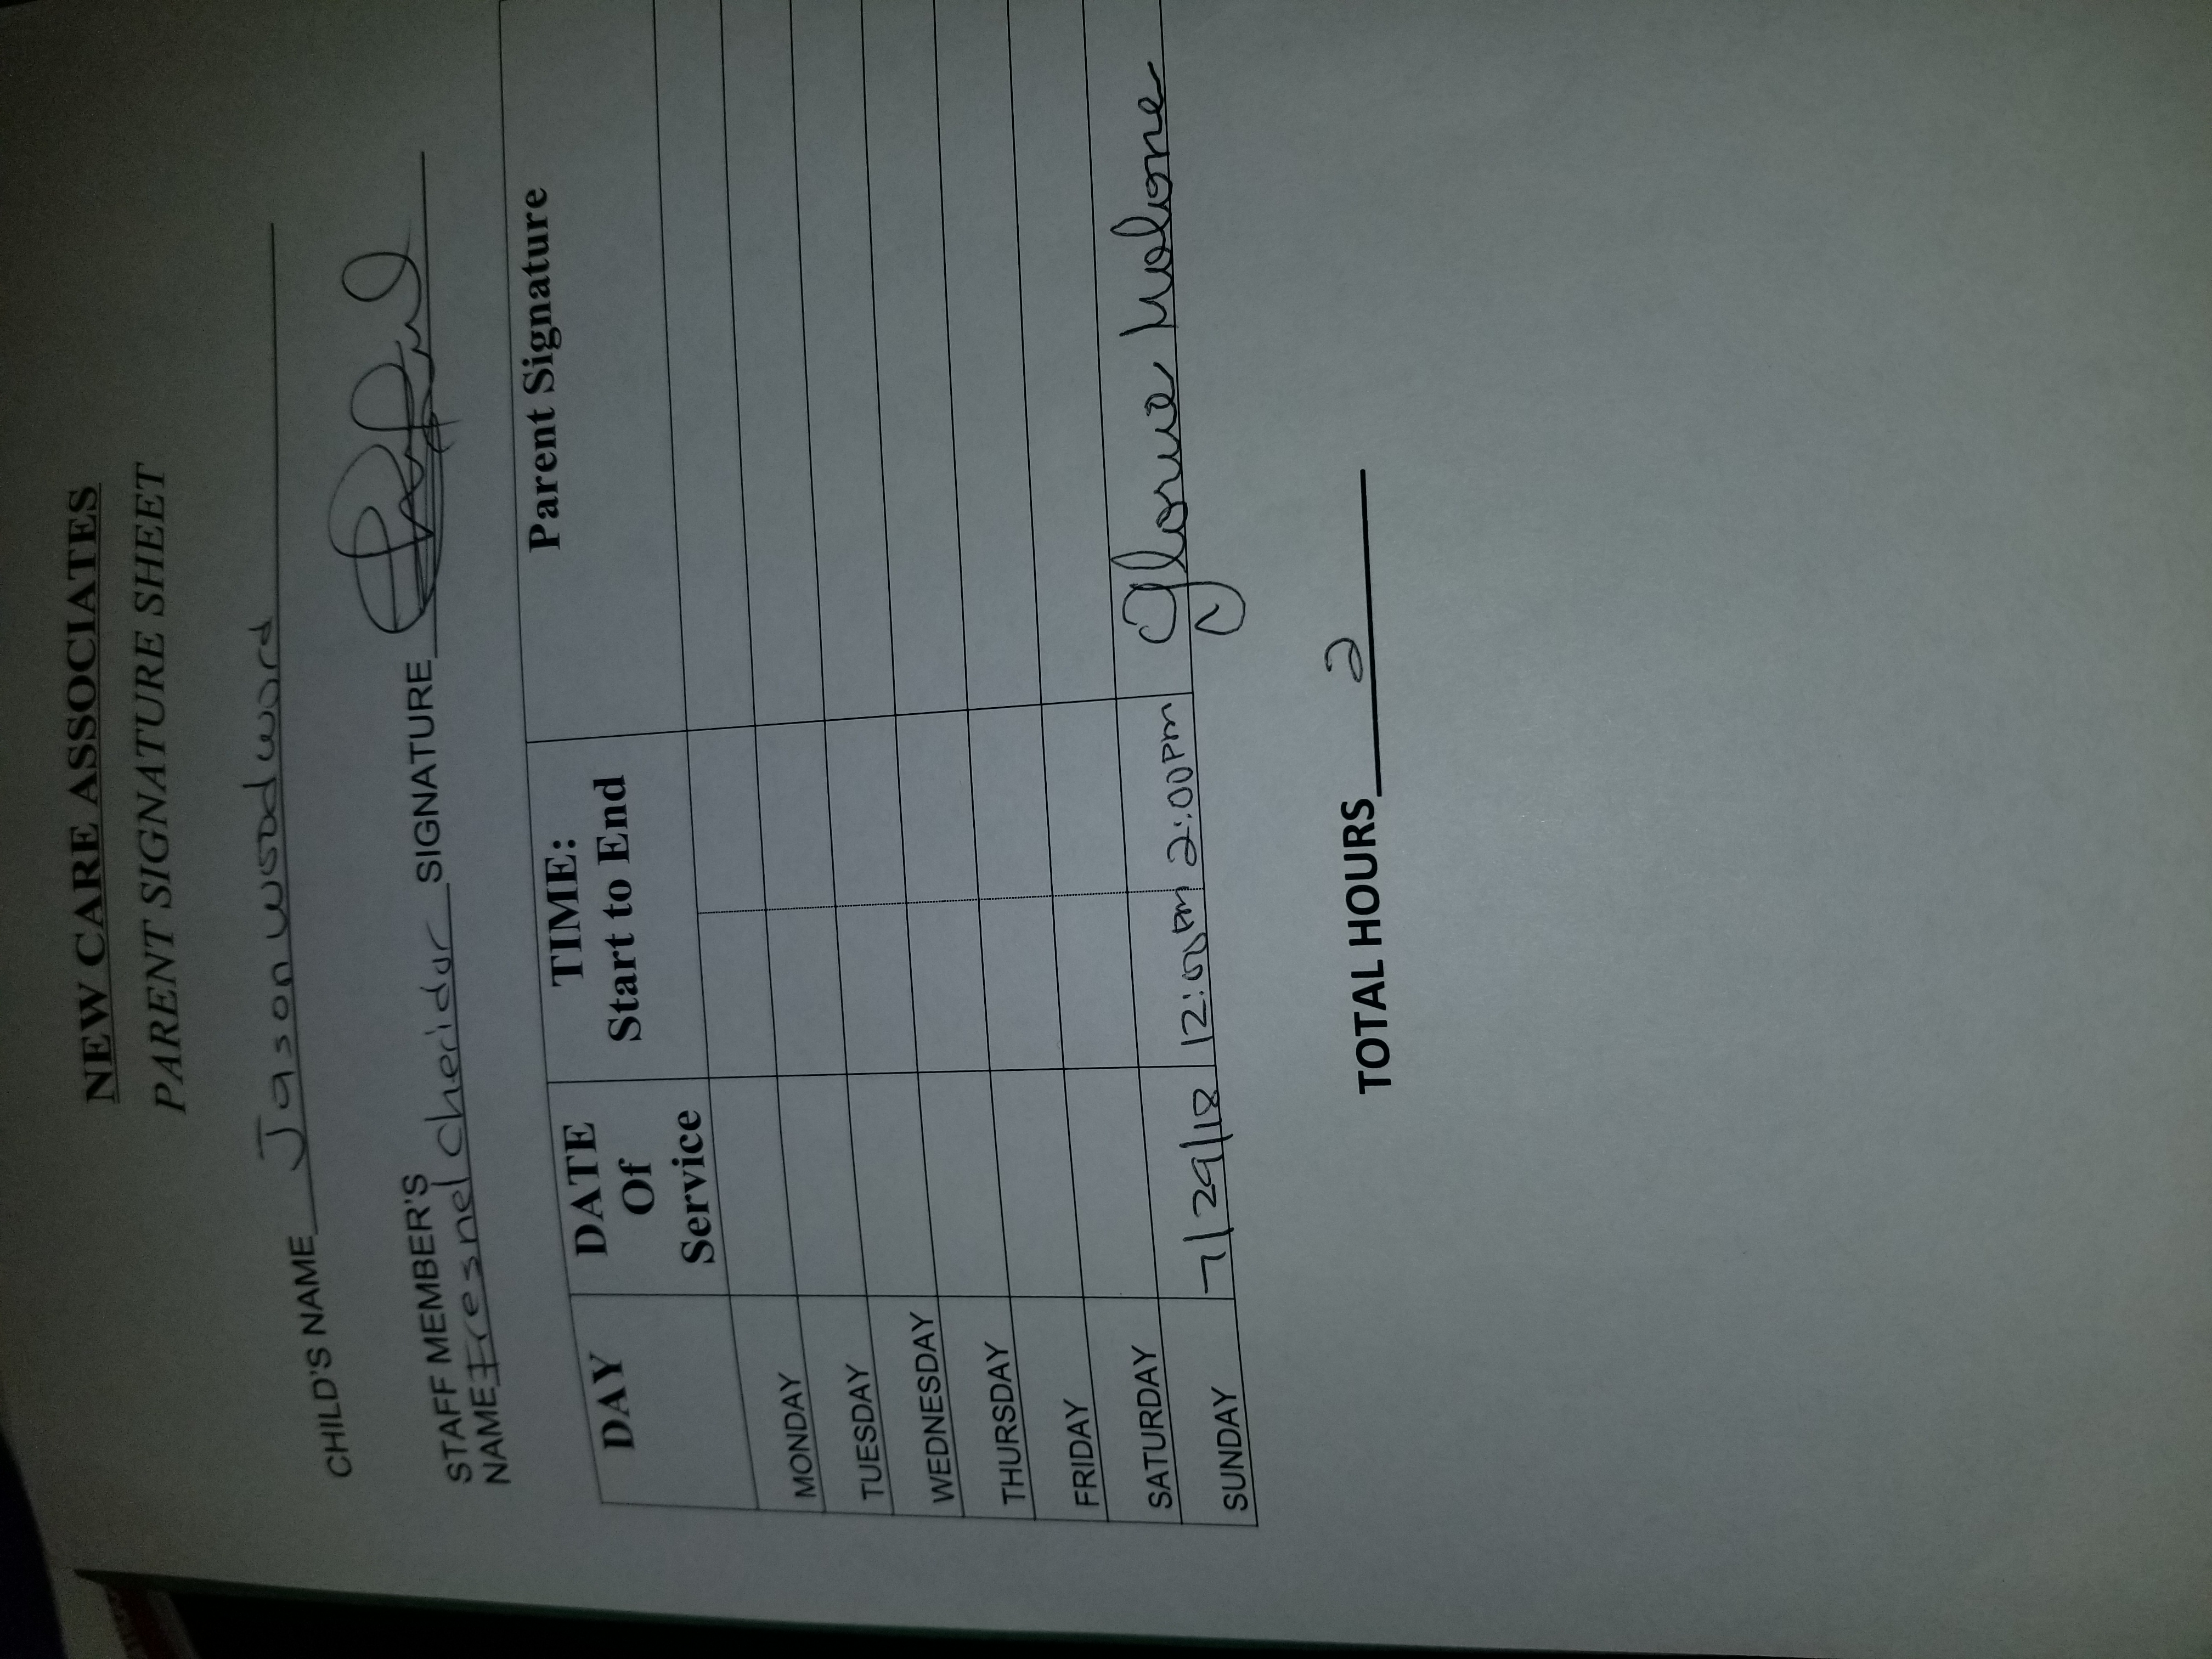 NEW CARE ASSOCIATES
PARENT SIGNATURE SHEET
CHILD'S NAME Jason Woodward
STAFF MEMBER'S
NAME Fresnel Cheridor SIGNATURE
DAY DATE Of Service TIME: Start to End Parent Signature
MONDAY
TUESDAY
WEDNESDAY
THURSDAY
FRIDAY
SATURDAY
SUNDAY 7/29/18 12:00pm 2:00pm Glorue Malone
TOTAL HOURS 2